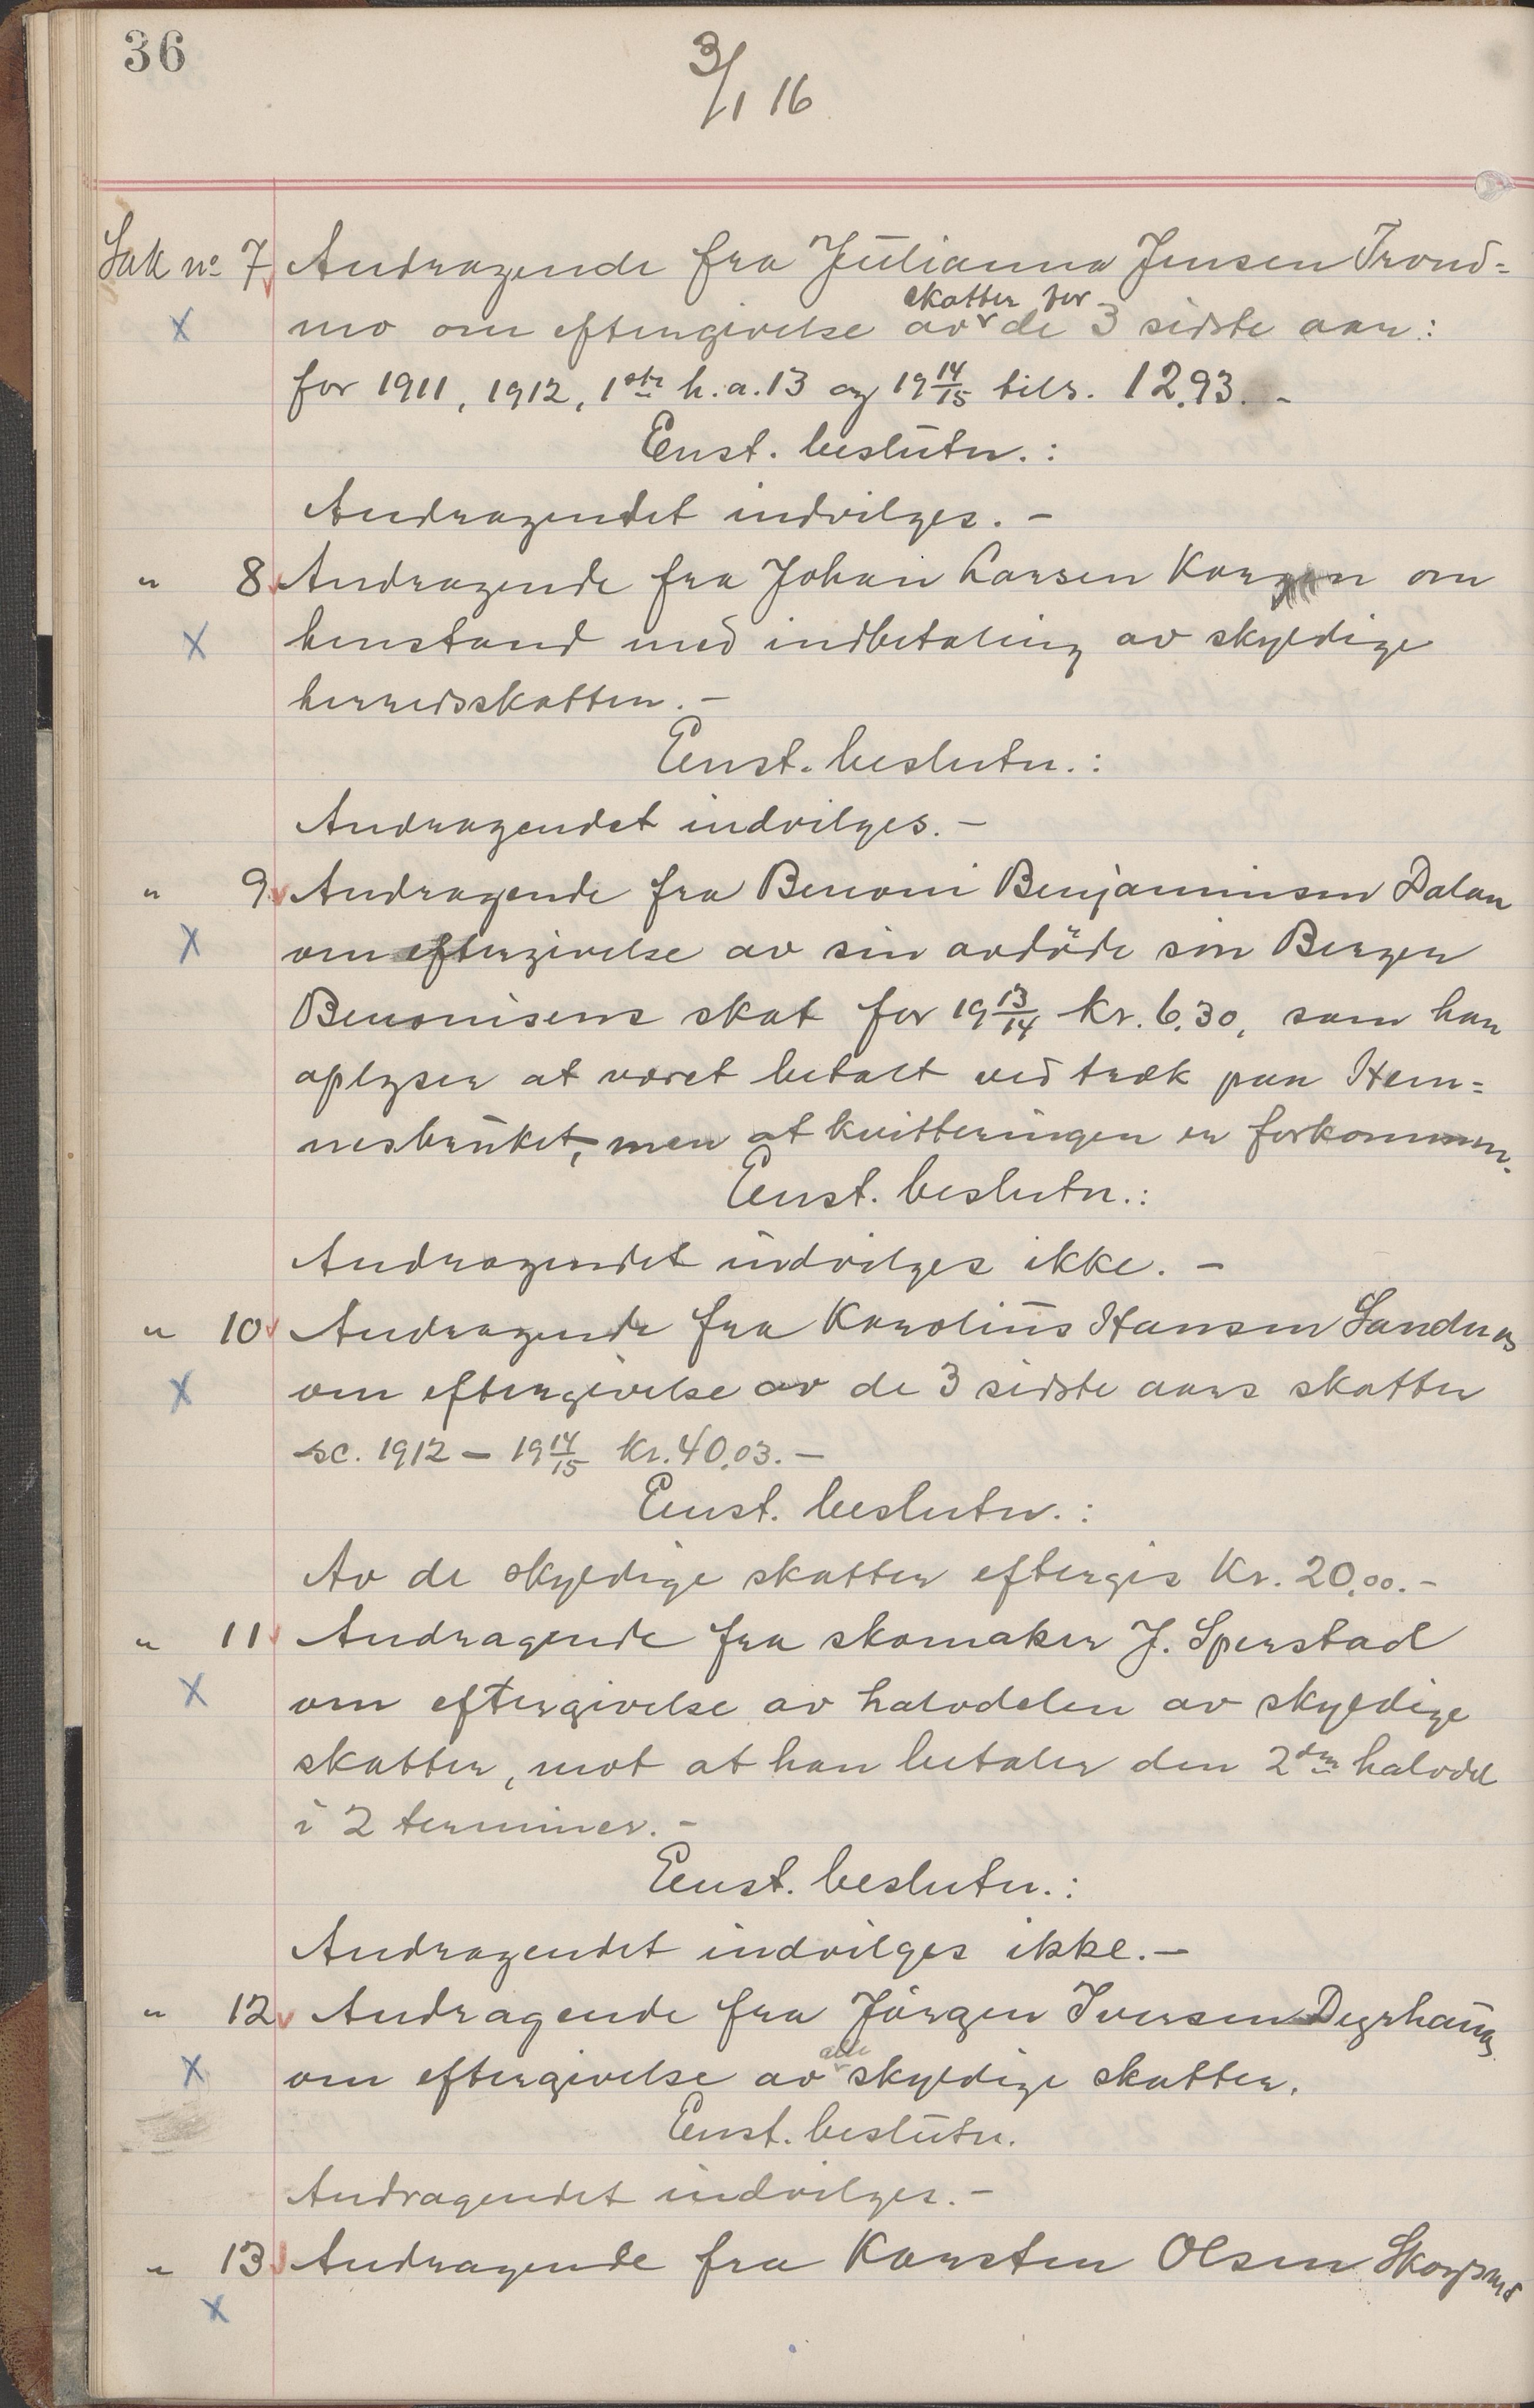 36
3/1 16
Sak no 7 Andragende fra Julianna Jensen Trond=
mo om eftergivelse av skatter for de 3 sidste aar:
for 1911, 1912, 1ste h.a. 13 og 19 14/15 tils. 12.93. -
Enst. beslutn.:
Andragendet indvilges. -
" 8 Andragende fra Johan Larsen Korgen om
henstand med indbetaling av skyldige
herredsskatter. -
Enst. beslutn.:
Andragendet indvilges. -
" 9 Andragende fra Benoni Benjaminsen Dalan
om eftergivelse av sin avdöde sön Berger
Benonisens skat for 19 13/14 kr. 6.30, som han
oplyser at været betalt ved træk paa Hem=
nesbruket, men at kvitteringen er forkommen.
Enst. beslutn.:
Andragendet indvilges ikke. -
" 10 Andragende fra Karolius Hansen Sandnes
om eftergivelse av de 3 sidste aars skatter
sc. 1912 - 19 14/15 kr. 40.03. -
Enst. beslutn.:
Av de skyldige skatter eftergis Kr. 20.00. -
" 11 Andragende fra skomaker J. Sperstad
om eftergivelse av halvdelen av skyldige
skatter, mot at han betaler den 2den halvdel
i 2 terminer. -
Enst. beslutn.:
Andragendet indvilges ikke. -
" 12 Andragende fra Jörgen Iversen Dyrhaug
om eftergivelse av alle skyldige skatter.
Enst. beslutn.
Andragendet indvilges. -
" 13 Andragende fra Karsten Olsen